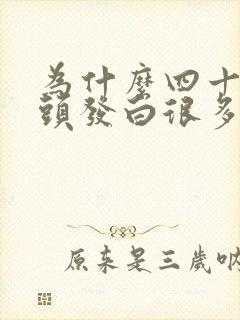 為什麼四十
頭發白很多
原來是三歲吶